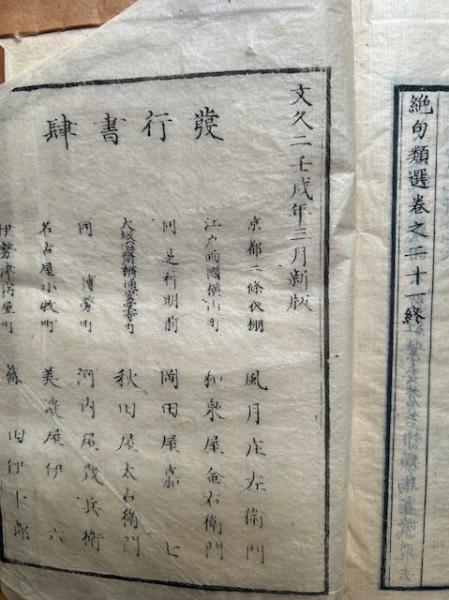 絶句類選巻之二十一終
文久二壬戌年三月新版
發行書肆
京都二條衣棚 風月庄左衛門
江戸両國横山町 和泉屋金右衛門
同芝神明前 岡田屋嘉七
大坂心齋橋通安堂寺町 秋田屋太右衛門
同博労町 河内屋茂兵衛
名古屋小牧町 美濃屋伊六
伊勢津 屋町 篠田伊十郎